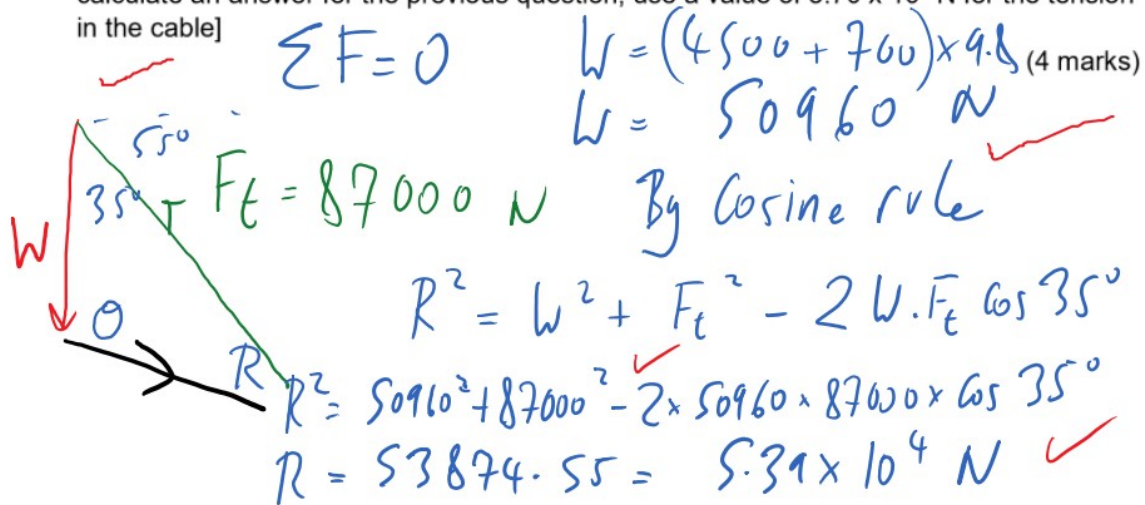 in the cable]
ΣF = 0
W = (4500 + 700) × 9.8 (4 marks)
W = 50960 N
55°
35°
Ft = 87000 N
By Cosine rule
W
R² = W² + Ft² - 2 W.Ft Cos 35°
θ
R
R² = 50960² + 87000² - 2 × 50960 × 87000 × Cos 35°
R = 53874.55 = 5.39 × 10⁴ N